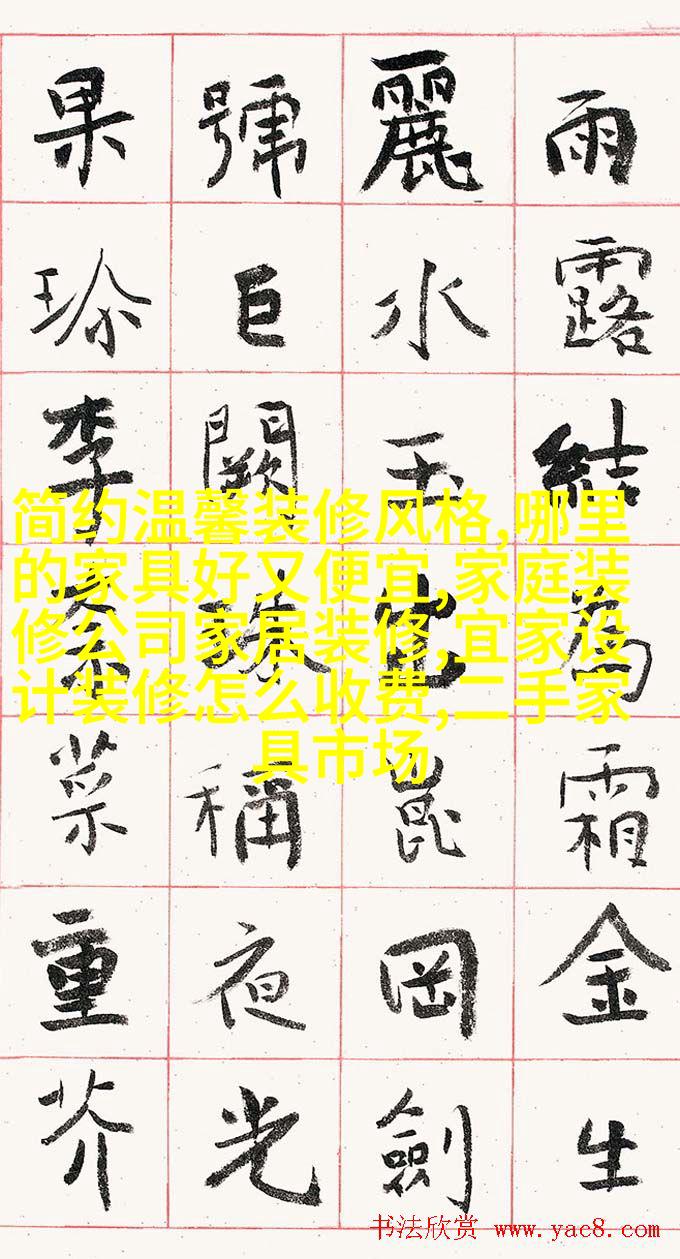 雨露結為霜金生
麗水玉出崑岡劍
號巨闕珠稱夜光
果珍李柰菜重芥
简约温馨装修风格,哪里
的家具好又便宜,家庭装
修公司家居装修,宜家设
计装修怎么收费,二手家
具市场
书法欣赏 www.yac8.com